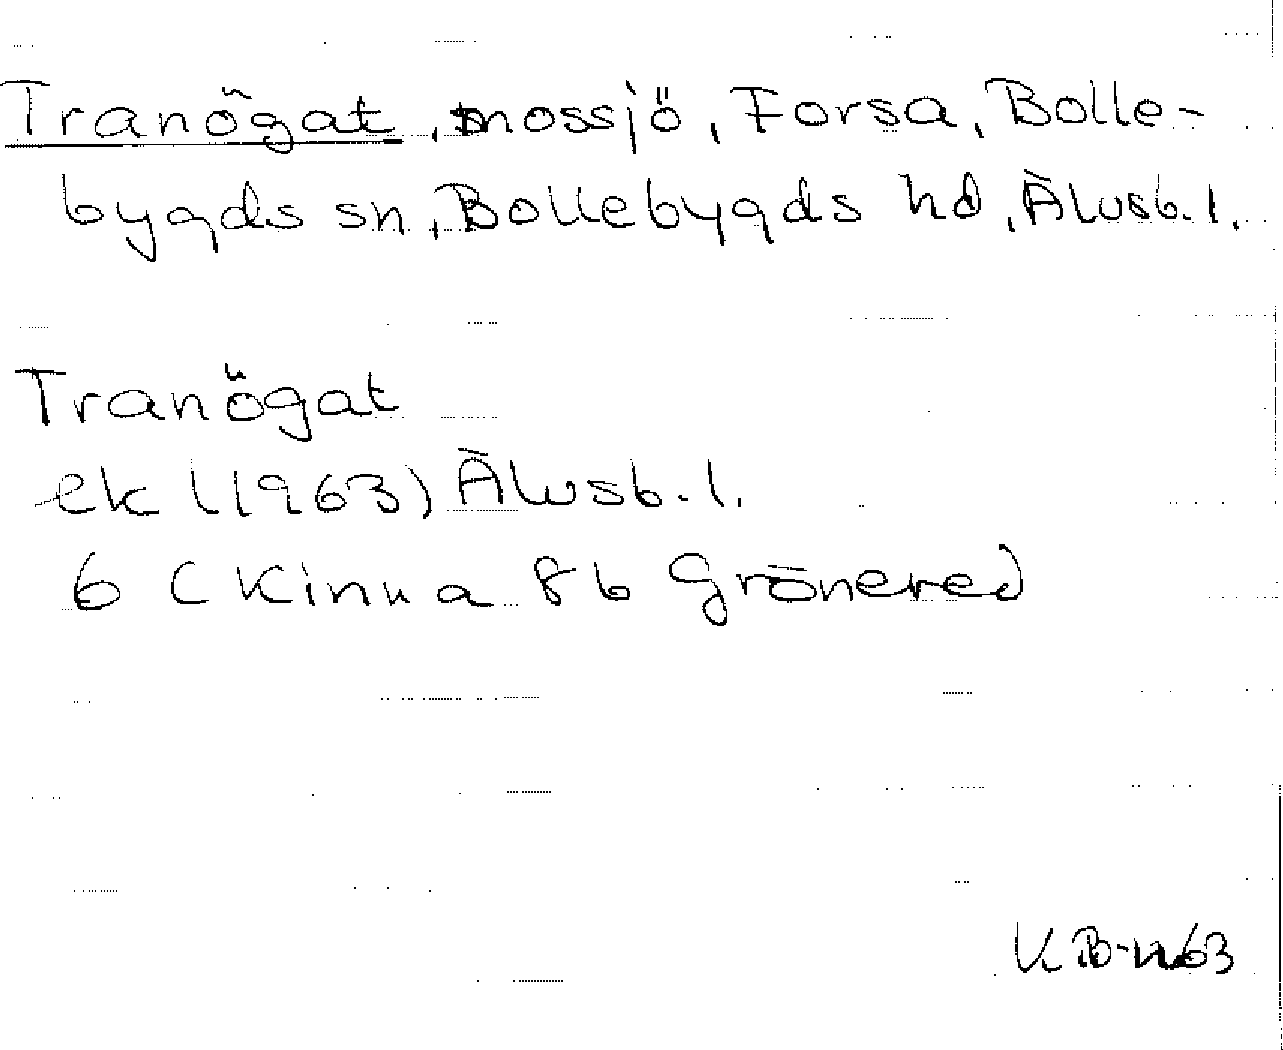 Tranögat, mossjö, Forsa, Bolle-
bygds sn, Bollebygds hd, Älvsb. l.
Tranögat
ek (1963) Älvsb. l.
6 (Kinna 8b Grönered)
KB-n63